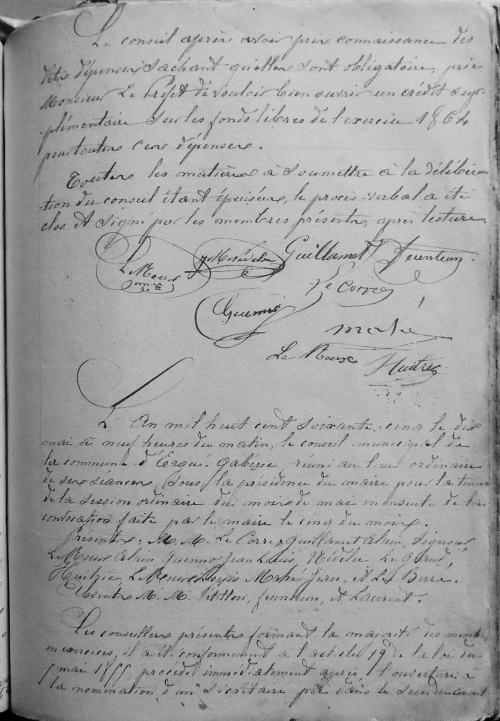 Le conseil après avoir pris connaissance des
dites dépenses sachant qu'elles sont obligatoire, prie
Monsieur Le Préfet de vouloir bien ouvrir un crédit sup-
plémentaire sur les fonds libres de l'exercice 1864
pour toutes ces dépenses.
Toutes les matières à soumettre à la délibéra
tion du conseil étant épuisées, le procès-verbal a été
clos et signé par les membres présents, après lecture
Guillamet
Feunteun
Le Corre
Guenno
Mahé
Le Roux
L'An mil huit cent soixante-cinq le dix
mai à neuf heures du matin, le conseil municipal de
la commune d'Ergué-Gabéric, réuni au lieu ordinaire
de ses séances, sous la présidence du maire pour la tenue
de la session ordinaire du mois de mai en suite de la
convocation faite par le maire le cinq du mois.
Présents, M.M. Le Corre, Guillamet Alain,
Guenno Jean Louis, Nédélec, Le
Mahé Jean, et Le Berre.
Absents M.M. Feunteun, et Laurent.
Les conseillers présents formant la majorité des
en exercices, il a été conformément à l'article 19 de la loi du
5 mai 1855 procédé immédiatement après l'ouverture à
la nomination d'un secrétaire pris dans le sein du conseil